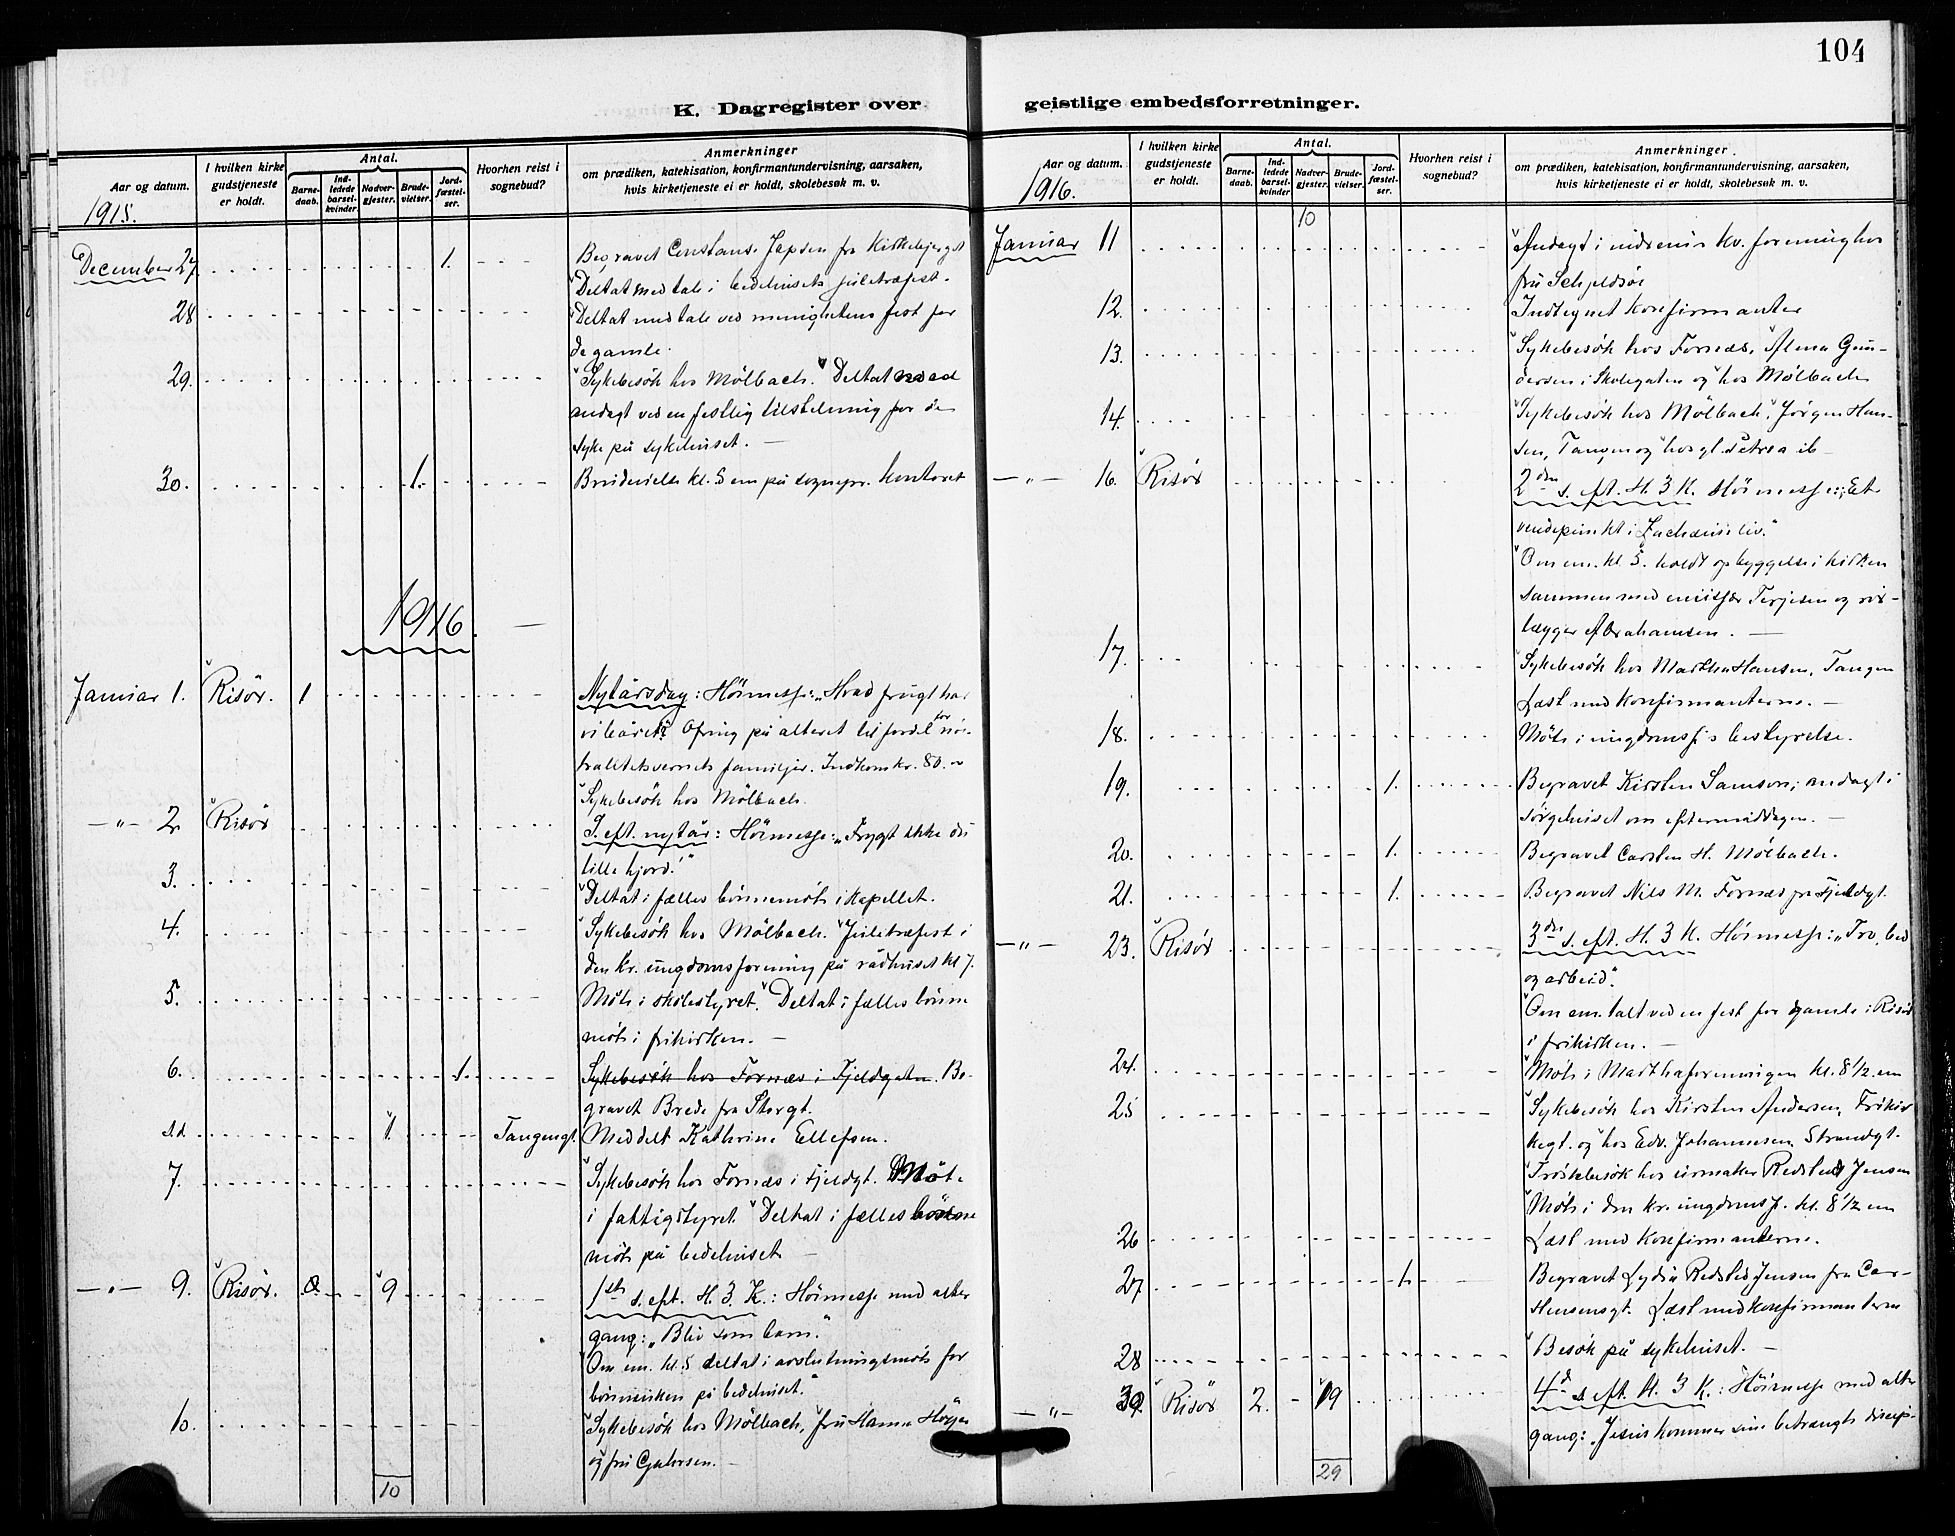 104
K. Dagregister over geistlige embedsforretninger.
Aar og datum.
I hvilken kirke gudstjeneste er holdt.
Antal.
Barnedaab.
Indledede barselkvinder.
Nadvergjester.
Brudevielser.
Jordfæstelser.
Hvorhen reist i sognebud?
Anmerkninger
om prædiken, katekisation, konfirmantundervisning, aarsaken,
hvis kirketjeneste ei er holdt, skolebesøk m. v.
1915.
December 27. 1. Begravet Constans Jepsen fra Kirkebjerget
Deltat med tale i bedehusets juletræfest.
28 Deltat med tale ved menighetens fest for
de gamle.
29. Sykebesök hos Mölbach. Deltat med
andagt ved en festlig tilstelning for de
syke på sykehuset. —
30. 1. Brudevielse kl. 5 em på sognepr. kontoret
1916. —
Januar 1. Risör. 1 Nytårsdag: Höimesse: „Hvad frugt har
vi båret?" Ofring på alteret til fordel for nöi-
tralitetsvernets familjer. Indkom kr. 80.
Sykebesök hos Mölbach.
—"— 2 Risör S. eft. nytår: Höimesse: „Frygt ikke du
lille hjord!"
3. Deltat i fælles bönnemöte i kapellet.
4. Sykebesök hos Mölbach. Juletræfest i
den kr. ungdomsforening på rådhuset kl 7.
5. Möte i skolestyret. Deltat i fælles bönne
möte i frikirken. —
6. 1. Sykebesök hos Fornæs i Fjeldgaten. Be-
gravet Brede fra Storgt.
s.d. 1. Tangengt. Meddelt Kathrine Ellefsen.
7. Sykebesök hos Fornæs i Fjeldgt. Möte
i fattigstyret. Deltat i fælles bönne
möte på bedehuset —
—"— 9. Risör. 9 1ste s. eft. H. 3. K.: Höimesse med alter
gang: „Bliv som barn."
Om em. kl. 5 deltat i avslutningsmöte for
bönneuken på bedehuset."
10. Sykebesök hos Mölbach, fru Hanna
og fru
10
Aar og datum.
I hvilken kirke gudstjeneste er holdt.
Antal.
Barnedaab.
Indledede barselkvinder.
Nadvergjester.
Brudevielser.
Jordfæstelser.
Hvorhen reist i sognebud?
Anmerkninger
om prædiken, katekisation, konfirmantundervisning, aarsaken,
hvis kirketjeneste ei er holdt, skolebesøk m. v.
1916.
10
Januar 11 Andagt i kv. forening hos
fru
12. Indtegnet konfirmanter
13. Sykebesök hos Fornæs, Alma Gun-
dersen i Skolegaten og hos Mölbach
14. Sykebesök hos Mölbach, Jörgen Han-
sen, Tangen og hos gl. Petrea ib —
—"— 16. Risör 2den s. eft. H. 3 K. Höimesse: „Et
vendepunkt i Zachæus's liv."
Om em. kl. 5. holdt opbyggelse i kirken
sammen med emissær Terjesen og
Abrahamsen. —
17. Sykebesök hos Marthe Hansen, Tangen
Læst med konfirmanterne. —
18. Möte i ungdomsf.s bestyrelse.
19. 1. Begravet Kirsten Samson; andagt i
sörgehuset om eftermiddagen. —
20. 1. Begravet Carsten H. Mölbach.
21. 1. Begravet Nils M. Fornæs fra Fjeldgt.
—"— 23. Risör 3die s. eft. H. 3 K. Höimesse: „Tro, bed
og arbeid".
Om em. talt ved en fest for gamle i Risör
i frikirken. —
24. Möte i Marthaforeningen kl. 8 1/2 em
25 Sykebesök hos Kirsten Andersen, Frikir
kegt. og hos Edv. Johannesen Strandgt.
Tröstebesök hos urmaker Redsted Jensen
Möte i den kr. ungdomsf. kl. 8 1/2 em
26 Læst med konfirmanterne.
27 1. Begravet Lydia Redsted Jensen fra Car-
stensensgt. Læst med konfirmanterne
28 Besök på sykehuset. —
—"— 30. Risör 2. - 19 4de s. eft. H. 3 K.: Höimesse med alter
gang: „Jesus kommer sine betrængte discip-
29